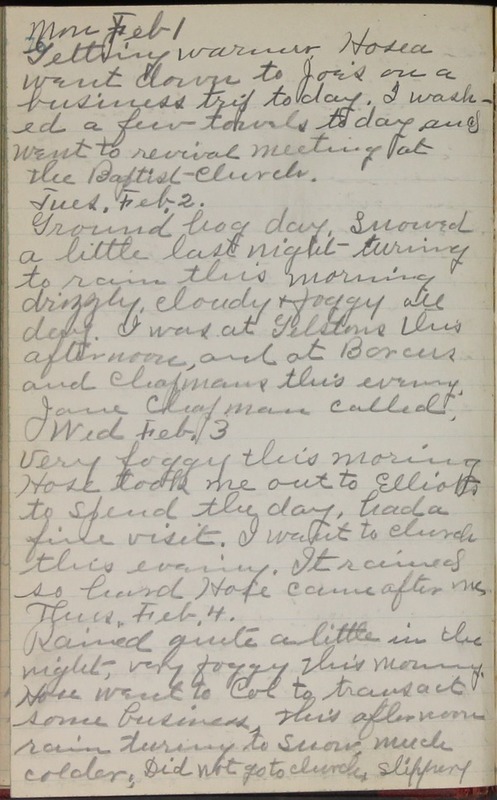 Mon Feb 1
Getting warmer, Hosea
went down to Joe's on a
business trip today. I wash-
ed a few towels today and
went to revival meeting at
the Baptist-Church.
Tues. Feb. 2.
Ground hog day, Snowed
a little last night-turing
to rain this morning
drizzly, cloudy & foggy all
day. I was at Gelstons this
afternoon, and at
and Chapmans this evening.
Jane Chapman called.
Wed Feb. 3
Very foggy this moring
Hose took me out to Elliotts
to spend the day, had a
fine visit. I want to church
this evening. It rained
so hard Hose came after me.
Thus. Feb. 4.
Rained quite a little in the
night, very foggy this morning.
Hose went to Col to transact
some business, this afternoon
rain turing to snow, much
colder, Did not go to church, slippery